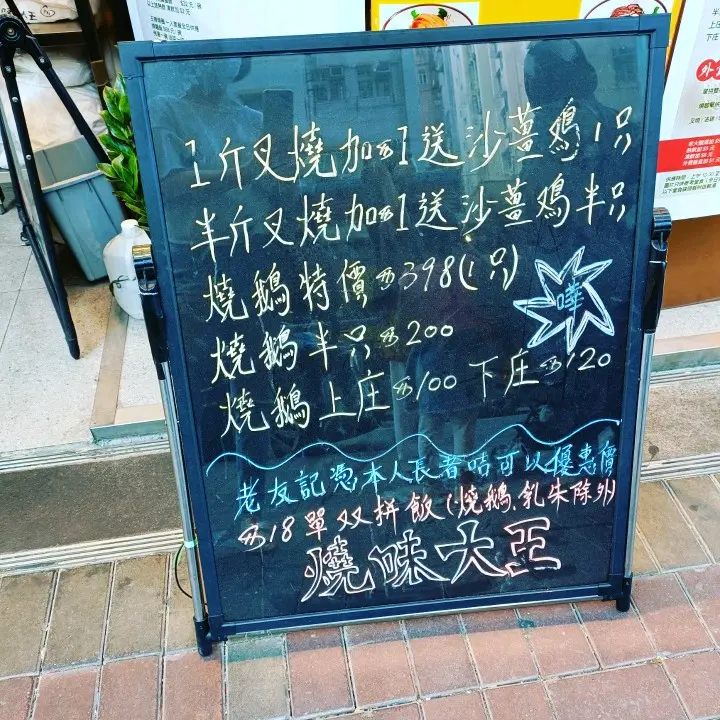 1斤叉燒加$1送沙薑鷄1只
半斤叉燒加$1送沙薑鷄半只
燒鵝特價$398(1只)
嘩
燒鵝半只$200
燒鵝上庄$100 下庄$120
老友記憑本人長者咭可以優惠價
$18單双拼飯(燒鵝、乳朱除外)
燒味大王